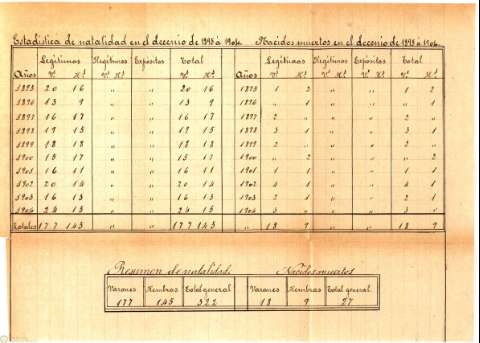 Estadística de natalidad en el decenio de 1895 á 1904. Nacidos muertos en el decenio de 1895 á 1904.
Legítimos Ilegítimos Expósitos Total Legítimas Ilegítimas Expósitos Total
Años V.s H.s V.s H.s V.s H.s Años V.s H.s V.s H.s V.s H.s V.s H.s
1895 20 16 " " 20 16 1895 1 2 " " 1 2
1896 13 9 " " 13 9 1896 " 1 " " " 1
1897 16 17 " " 16 17 1897 2 " " " 2 "
1898 19 15 " " 19 15 1898 3 1 " " 3 1
1899 18 18 " " 18 18 1899 2 " " " 2 "
1900 15 17 " " 15 17 1900 " 2 " " " 2
1901 16 11 " " 16 11 1901 1 1 " " 1 1
1902 20 14 " " 20 14 1902 4 1 " " 4 1
1903 16 13 " " 16 13 1903 2 1 " " 2 1
1904 24 15 " " 24 15 1904 3 " " " 3 "
Totales 177 145 " " 177 145 " 18 9 " " 18 9
Resumen de natalidad. Nacidos muertos
Varones Hembras Total general Varones Hembras Total general
177 145 322 18 9 27